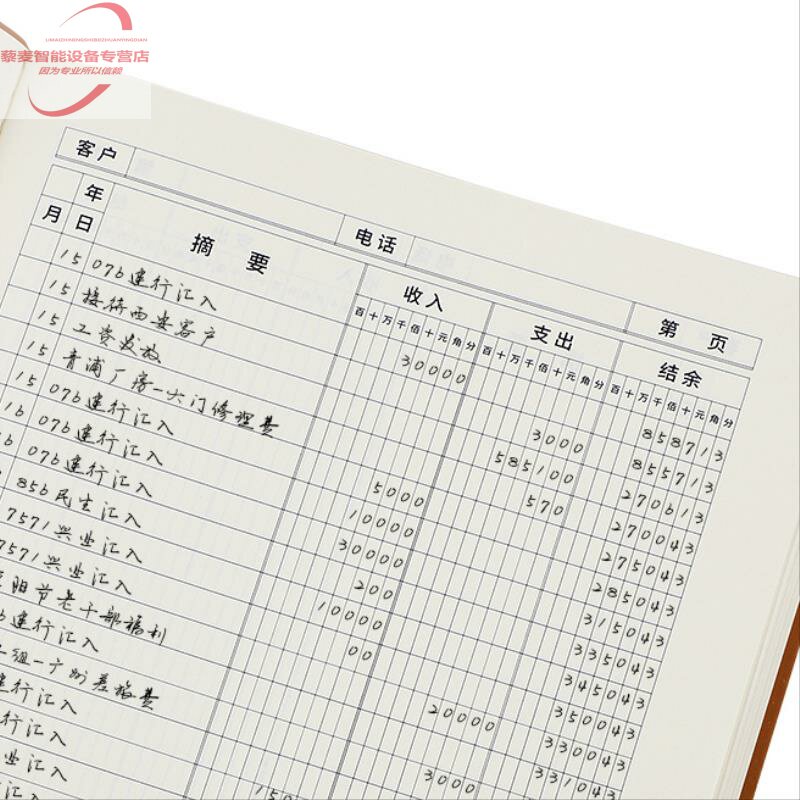 LIMAIZHINENGSHEBEIZHUANYINGDIAN
藜麦智能设备专营店
因为专业所以信赖
客户 电话 第 页
年 摘要 收入 支出 结余
月 日 百十万千佰十元角分 百十万千佰十元角分 百十万千佰十元角分
15 076建行汇入 30000 858713
15 接待西安客户 3000 855713
15 工资发放 585100 270613
15 青浦厂房一大门修理费 570 270043
15 076建行汇入 5000 275043
16 076建行汇入 10000 285043
076建行汇入 30000 315043
856民生汇入 335043
7571兴业汇入 10000 345043
7571兴业汇入 350043
阳节老干部福利 20000 330043
建行汇入 331043
组一广州差旅费 3000
建行汇入
行汇入
业汇入
汇入